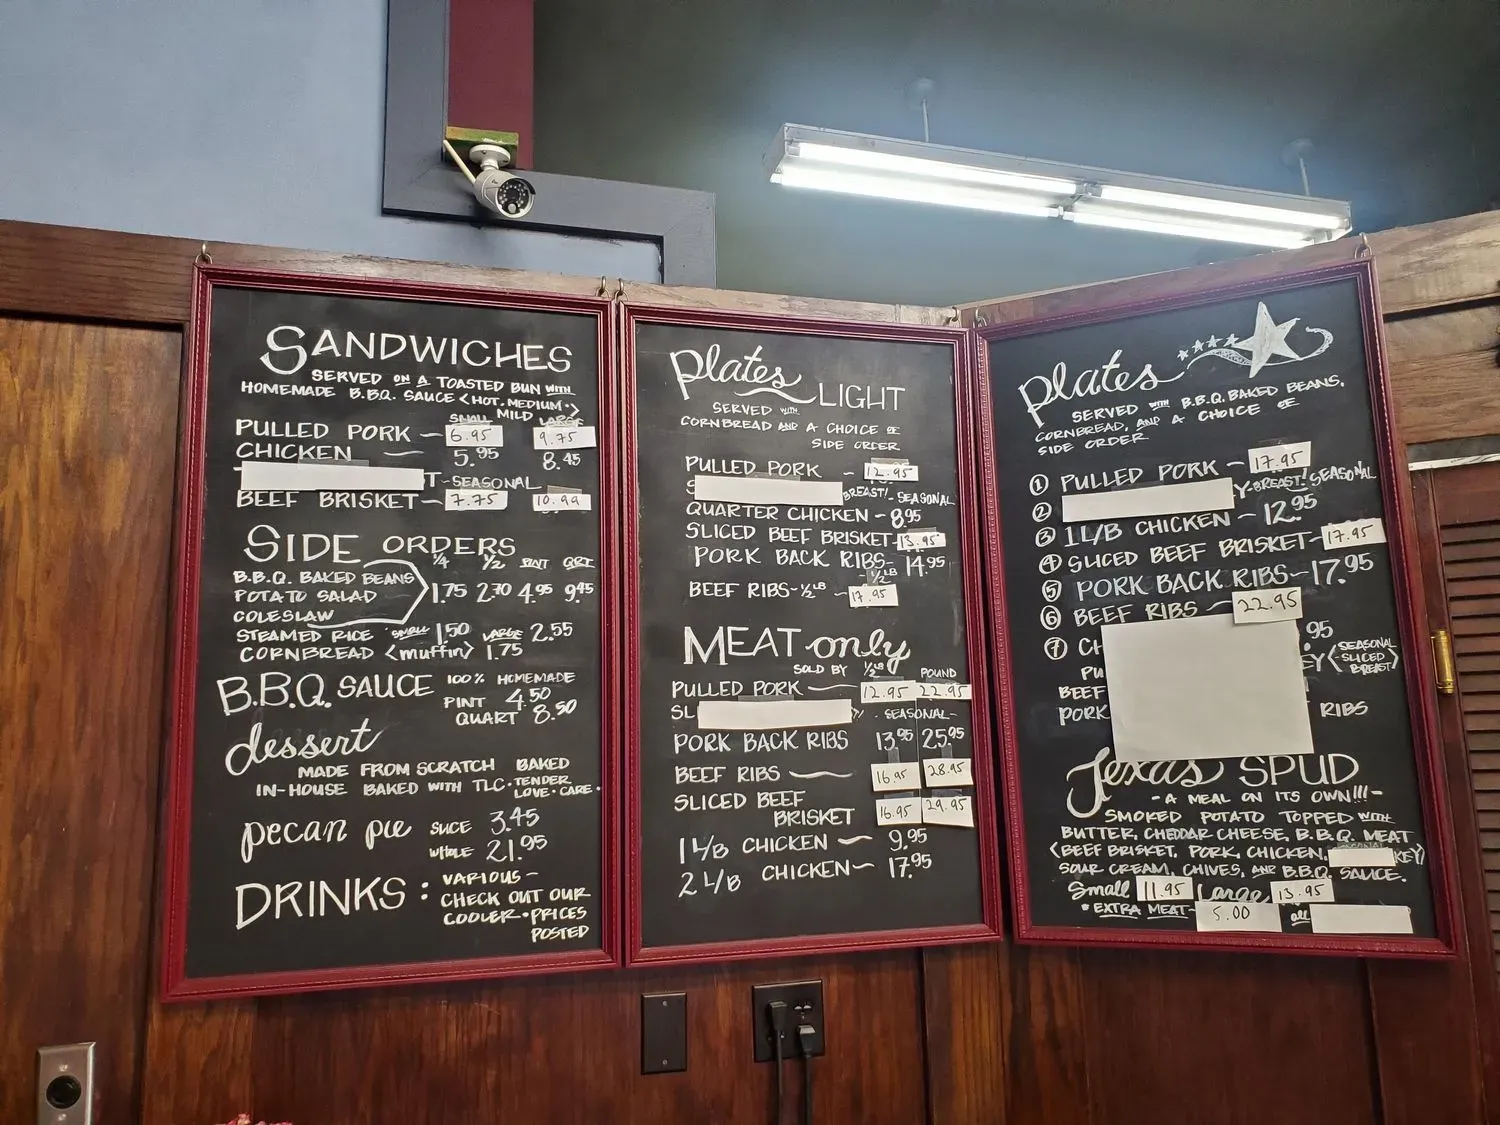 SANDWICHES
SERVED ON A TOASTED BUN WITH
HOMEMADE B.B.Q. SAUCE <HOT, MEDIUM, MILD>
SMALL LARGE
PULLED PORK 6.95 9.75
CHICKEN 5.95 8.45
T-SEASONAL
BEEF BRISKET 7.75 10.99
SIDE ORDERS
1/4 1/2 PINT QRT
B.B.Q. BAKED BEANS
POTATO SALAD 1.75 2.70 4.95 9.45
COLESLAW
STEAMED RICE SMALL 1.50 LARGE 2.55
CORNBREAD <muffin> 1.75
B.B.Q. SAUCE 100% HOMEMADE
PINT 4.50
QUART 8.50
dessert
MADE FROM SCRATCH BAKED
IN-HOUSE BAKED WITH TLC. TENDER
LOVE. CARE.
pecan pie SLICE 3.45
WHOLE 21.95
DRINKS: VARIOUS-
CHECK OUT OUR
COOLER. PRICES
POSTED
Plates LIGHT
SERVED WITH
CORNBREAD AND A CHOICE OF
SIDE ORDER
PULLED PORK - 12.95
S BREAST!- SEASONAL
QUARTER CHICKEN - 8.95
SLICED BEEF BRISKET- 13.95
PORK BACK RIBS- 1/2 LB 14.95
BEEF RIBS-1/2 LB - 17.95
MEAT only
SOLD BY 1/2 LB POUND
PULLED PORK 12.95 22.95
SL -SEASONAL-
PORK BACK RIBS 13.95 25.95
BEEF RIBS 16.95 28.95
SLICED BEEF
BRISKET 16.95 29.95
1 L/B CHICKEN 9.95
2 L/B CHICKEN 17.95
Plates
SERVED WITH B.B.Q. BAKED BEANS,
CORNBREAD, AND A CHOICE OF
SIDE ORDER
1 PULLED PORK - 17.95
2 Y-BREAST! SEASONAL
3 1 L/B CHICKEN - 12.95
4 SLICED BEEF BRISKET- 17.95
5 PORK BACK RIBS-17.95
6 BEEF RIBS - 22.95
7 CH .95
PU EY <SEASONAL SLICED BREAST>
BEEF
PORK RIBS
Texas SPUD
- A MEAL ON ITS OWN!!!-
SMOKED POTATO TOPPED WITH
BUTTER, CHEDDAR CHEESE, B.B.Q. MEAT
<BEEF BRISKET, PORK, CHICKEN, KEY>
SOUR CREAM, CHIVES, AND B.B.Q. SAUCE.
Small 11.95 Large 13.95
*EXTRA MEAT- 5.00 all